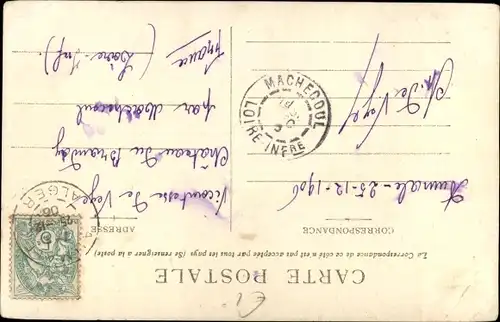 CARTE POSTALE
La Correspondance de ce côté n'est pas acceptée par tous les pays (Se renseigner à la poste)
CORRESPONDANCE
ADRESSE
Aumale - 25-12-1906
Vicomtesse De Veye
Château du Branday
par Machecoul
(Loire-Inf)
France
De Veye
MACHECOUL
LOIRE-INFRE
ALGER